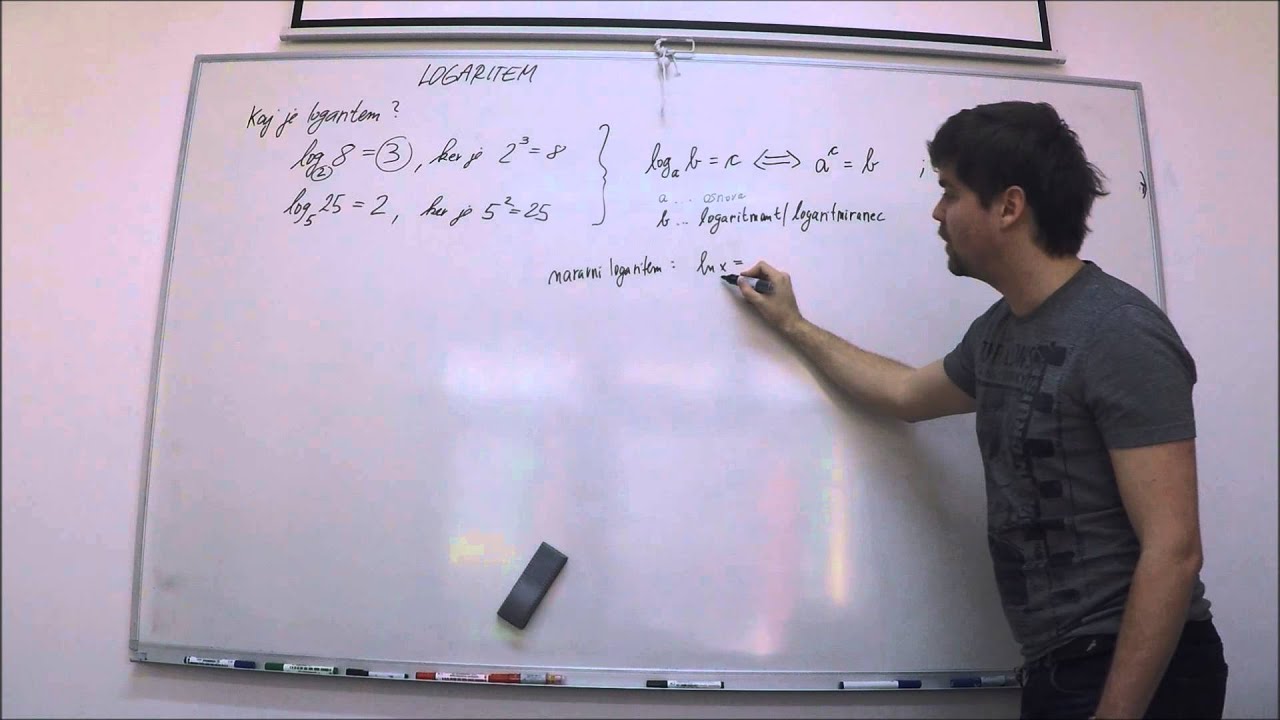 LOGARITEM
Kaj je logaritem?
log₂ 8 = 3, ker je 2³ = 8
log₅ 25 = 2, ker je 5² = 25
logₐ b = c ⟺ aᶜ = b ;
a ... osnova
b ... logaritmant/logaritmiranec
naravni logaritem: ln x =